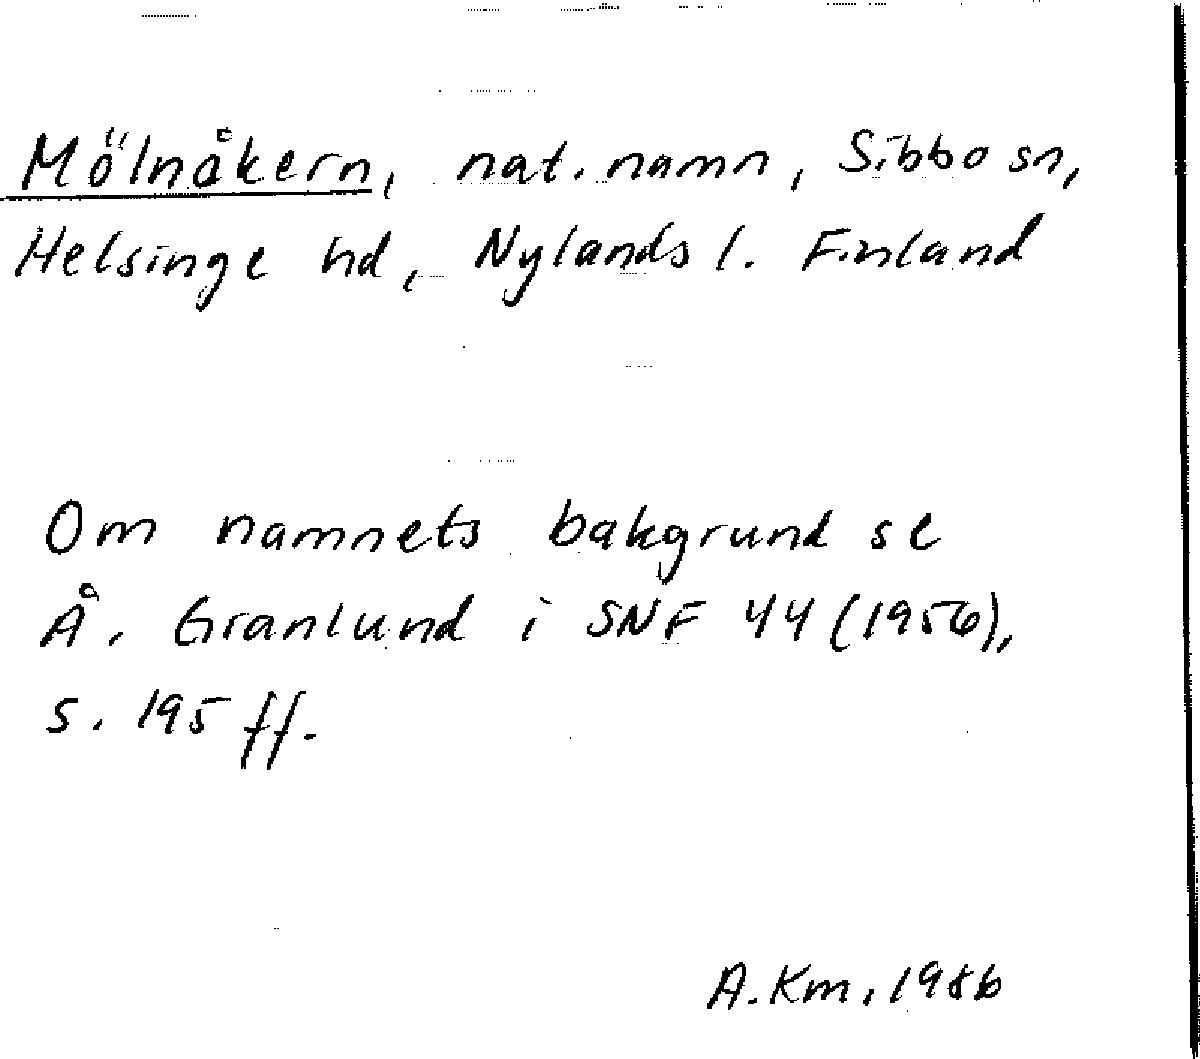 Mölnåkern, nat. namn, Sibbo sn,
Helsinge hd, Nylands l. Finland
Om namnets bakgrund se
Å. Granlund i SNF 44 (1956),
s. 195 ff.
A. Km, 1986